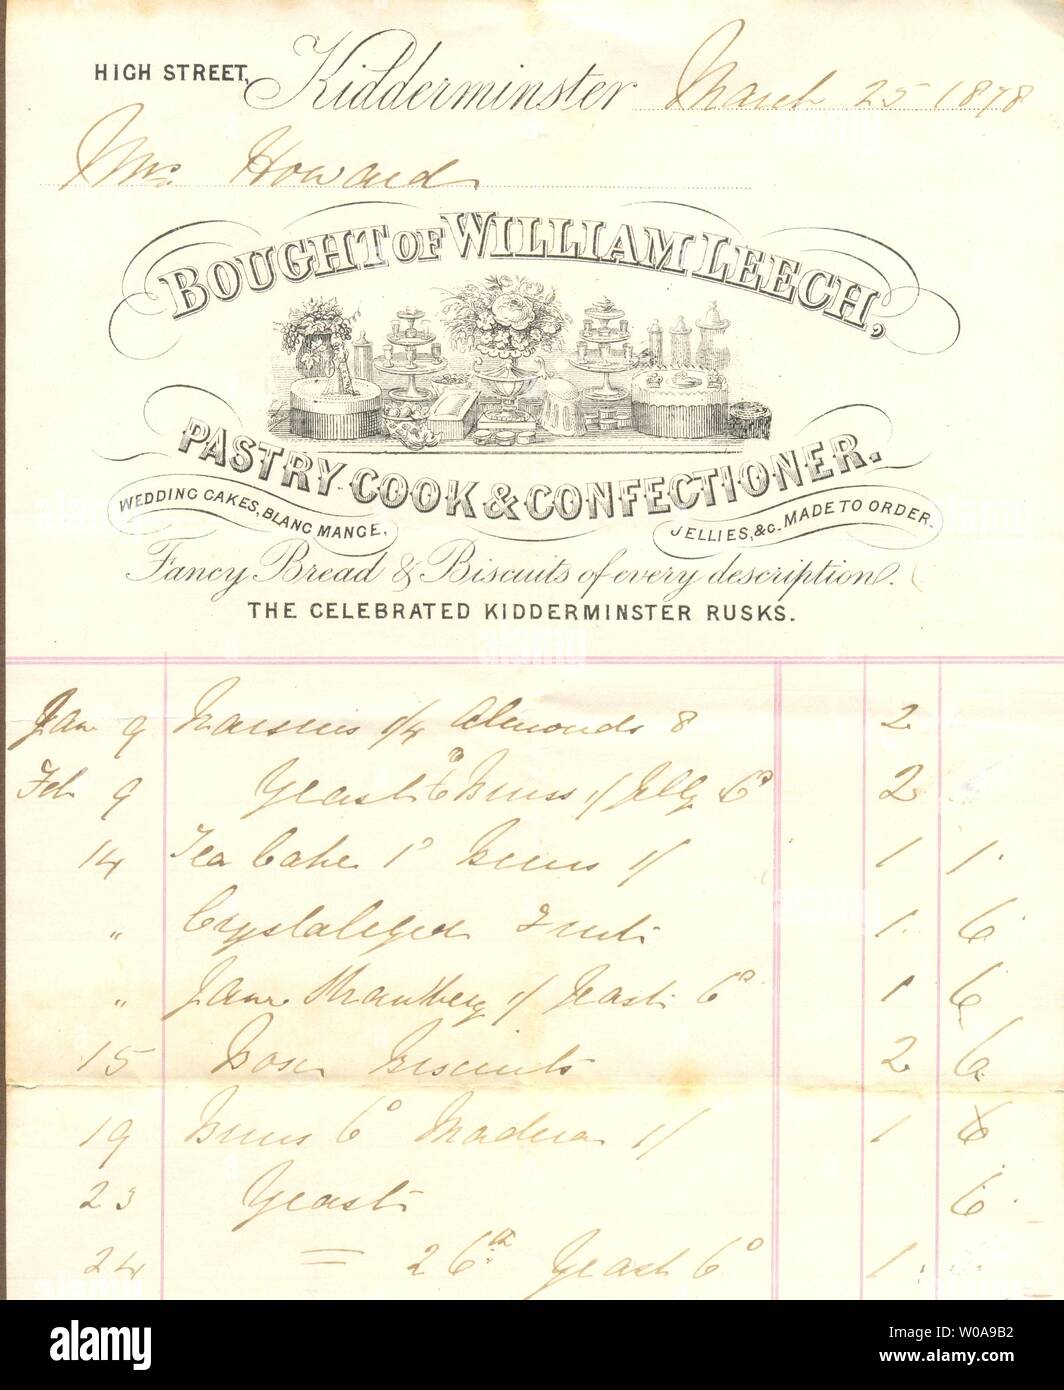 HIGH STREET, Kidderminster March 25 1878
Mrs Howard
BOUGHT OF WILLIAM LEECH,
PASTRY COOK & CONFECTIONER.
WEDDING CAKES, BLANC MANGE. JELLIES, &C. MADE TO ORDER.
Fancy Bread & Biscuits of every description.
THE CELEBRATED KIDDERMINSTER RUSKS.
Jan 9 Raisins 1/4 Almonds 8 2
Feb 9 Yeast 6D Buns 1/ Jelly 6D 2
14 Tea Cake 1D Buns 1/ 1 1
" Crystalized Fruit 1 6
" Jam Strawberry 1/ Yeast 6D 1 6
15 Box Biscuits 2 6
19 Buns 6D Madeira 1/ 1 6
23 Yeast 6
24 = 26th Yeast 6D 1
alamy
Image ID: W0A9B2
www.alamy.com